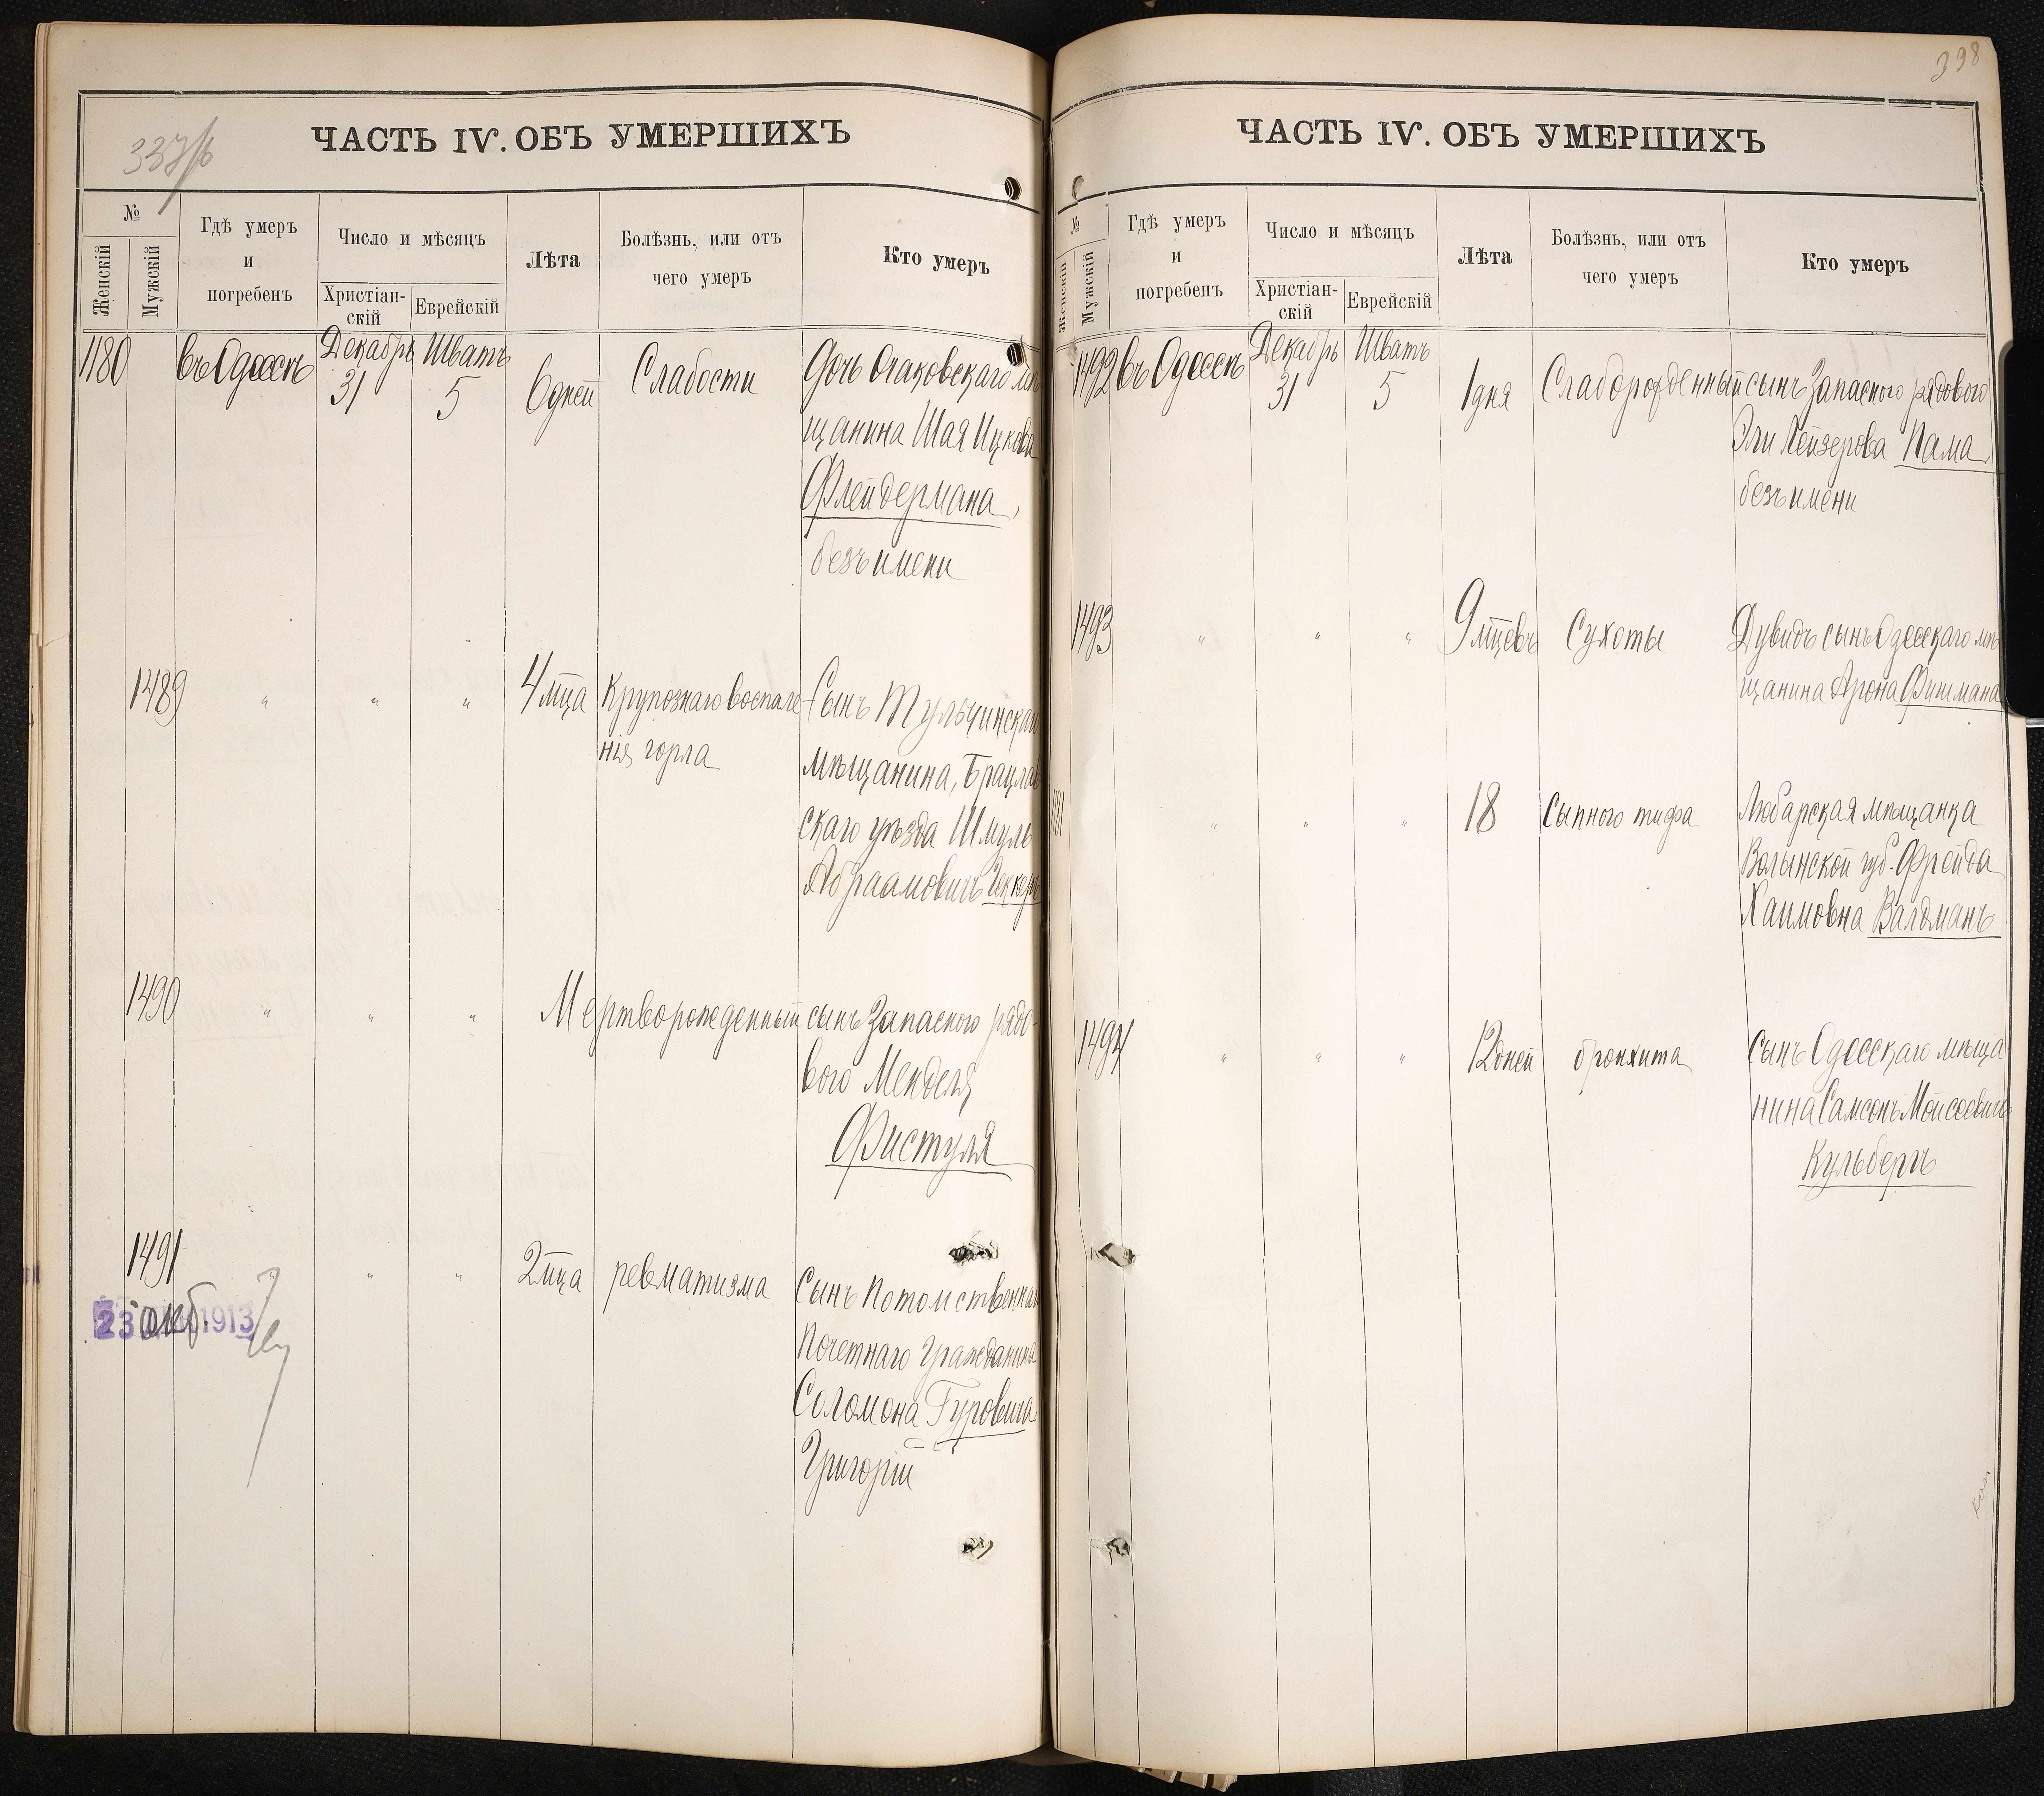 337/6
ЧАСТЬ IV. ОБЪ УМЕРШИХЪ
№
Женскій
Мужскій
Гдѣ умеръ
и
погребенъ
Число и мѣсяцъ
Христіан-
скій
Еврейскій
Лѣта
Болѣзнь, или отъ
чего умеръ
Кто умеръ
1180 въ Одессѣ Декабрь 31 Шватъ 5 6 дней Слабости Дочь Очаковскаго мѣ
щанина Шая Ицкова
Флейдермана,
безъ имени
1489 " " " 4 мца Крупознаго воспале Сынъ Тульчинскаго
нія горла мѣщанина, Брацлав
скаго уѣзда Шмуль
Абраамовичъ
1490 " " " Мертворожденный сынъ Запаснаго рядо-
вого Менделя
Фистуля
1491 " " 2 мца ревматизма Сынъ Потомственнаго
Почетнаго Гражданина
Соломона Гуровича
Григорій
23 окт. 1913
398
ЧАСТЬ IV. ОБЪ УМЕРШИХЪ
№
Женскій
Мужскій
Гдѣ умеръ
и
погребенъ
Число и мѣсяцъ
Христіан-
скій
Еврейскій
Лѣта
Болѣзнь, или отъ
чего умеръ
Кто умеръ
1492 въ Одессѣ Декабрь 31 Шватъ 5 1 дня Слаборожденный сынъ Запасного рядового
Эли Лейзерова Пама,
безъ имени
1493 " " " 9 мцевъ Сухоты Дувидъ сынъ Одесскаго мѣ
щанина Арона Фишмана
1181 " " " 18 Сыпного тифа Любарская мѣщанка
Волынской губ. Фрейда
Хаимовна Валдманъ
1494 " " " 12 дней бронхита Сынъ Одесскаго мѣща
нина Самсонъ Мойсеевичъ
Кульбергъ